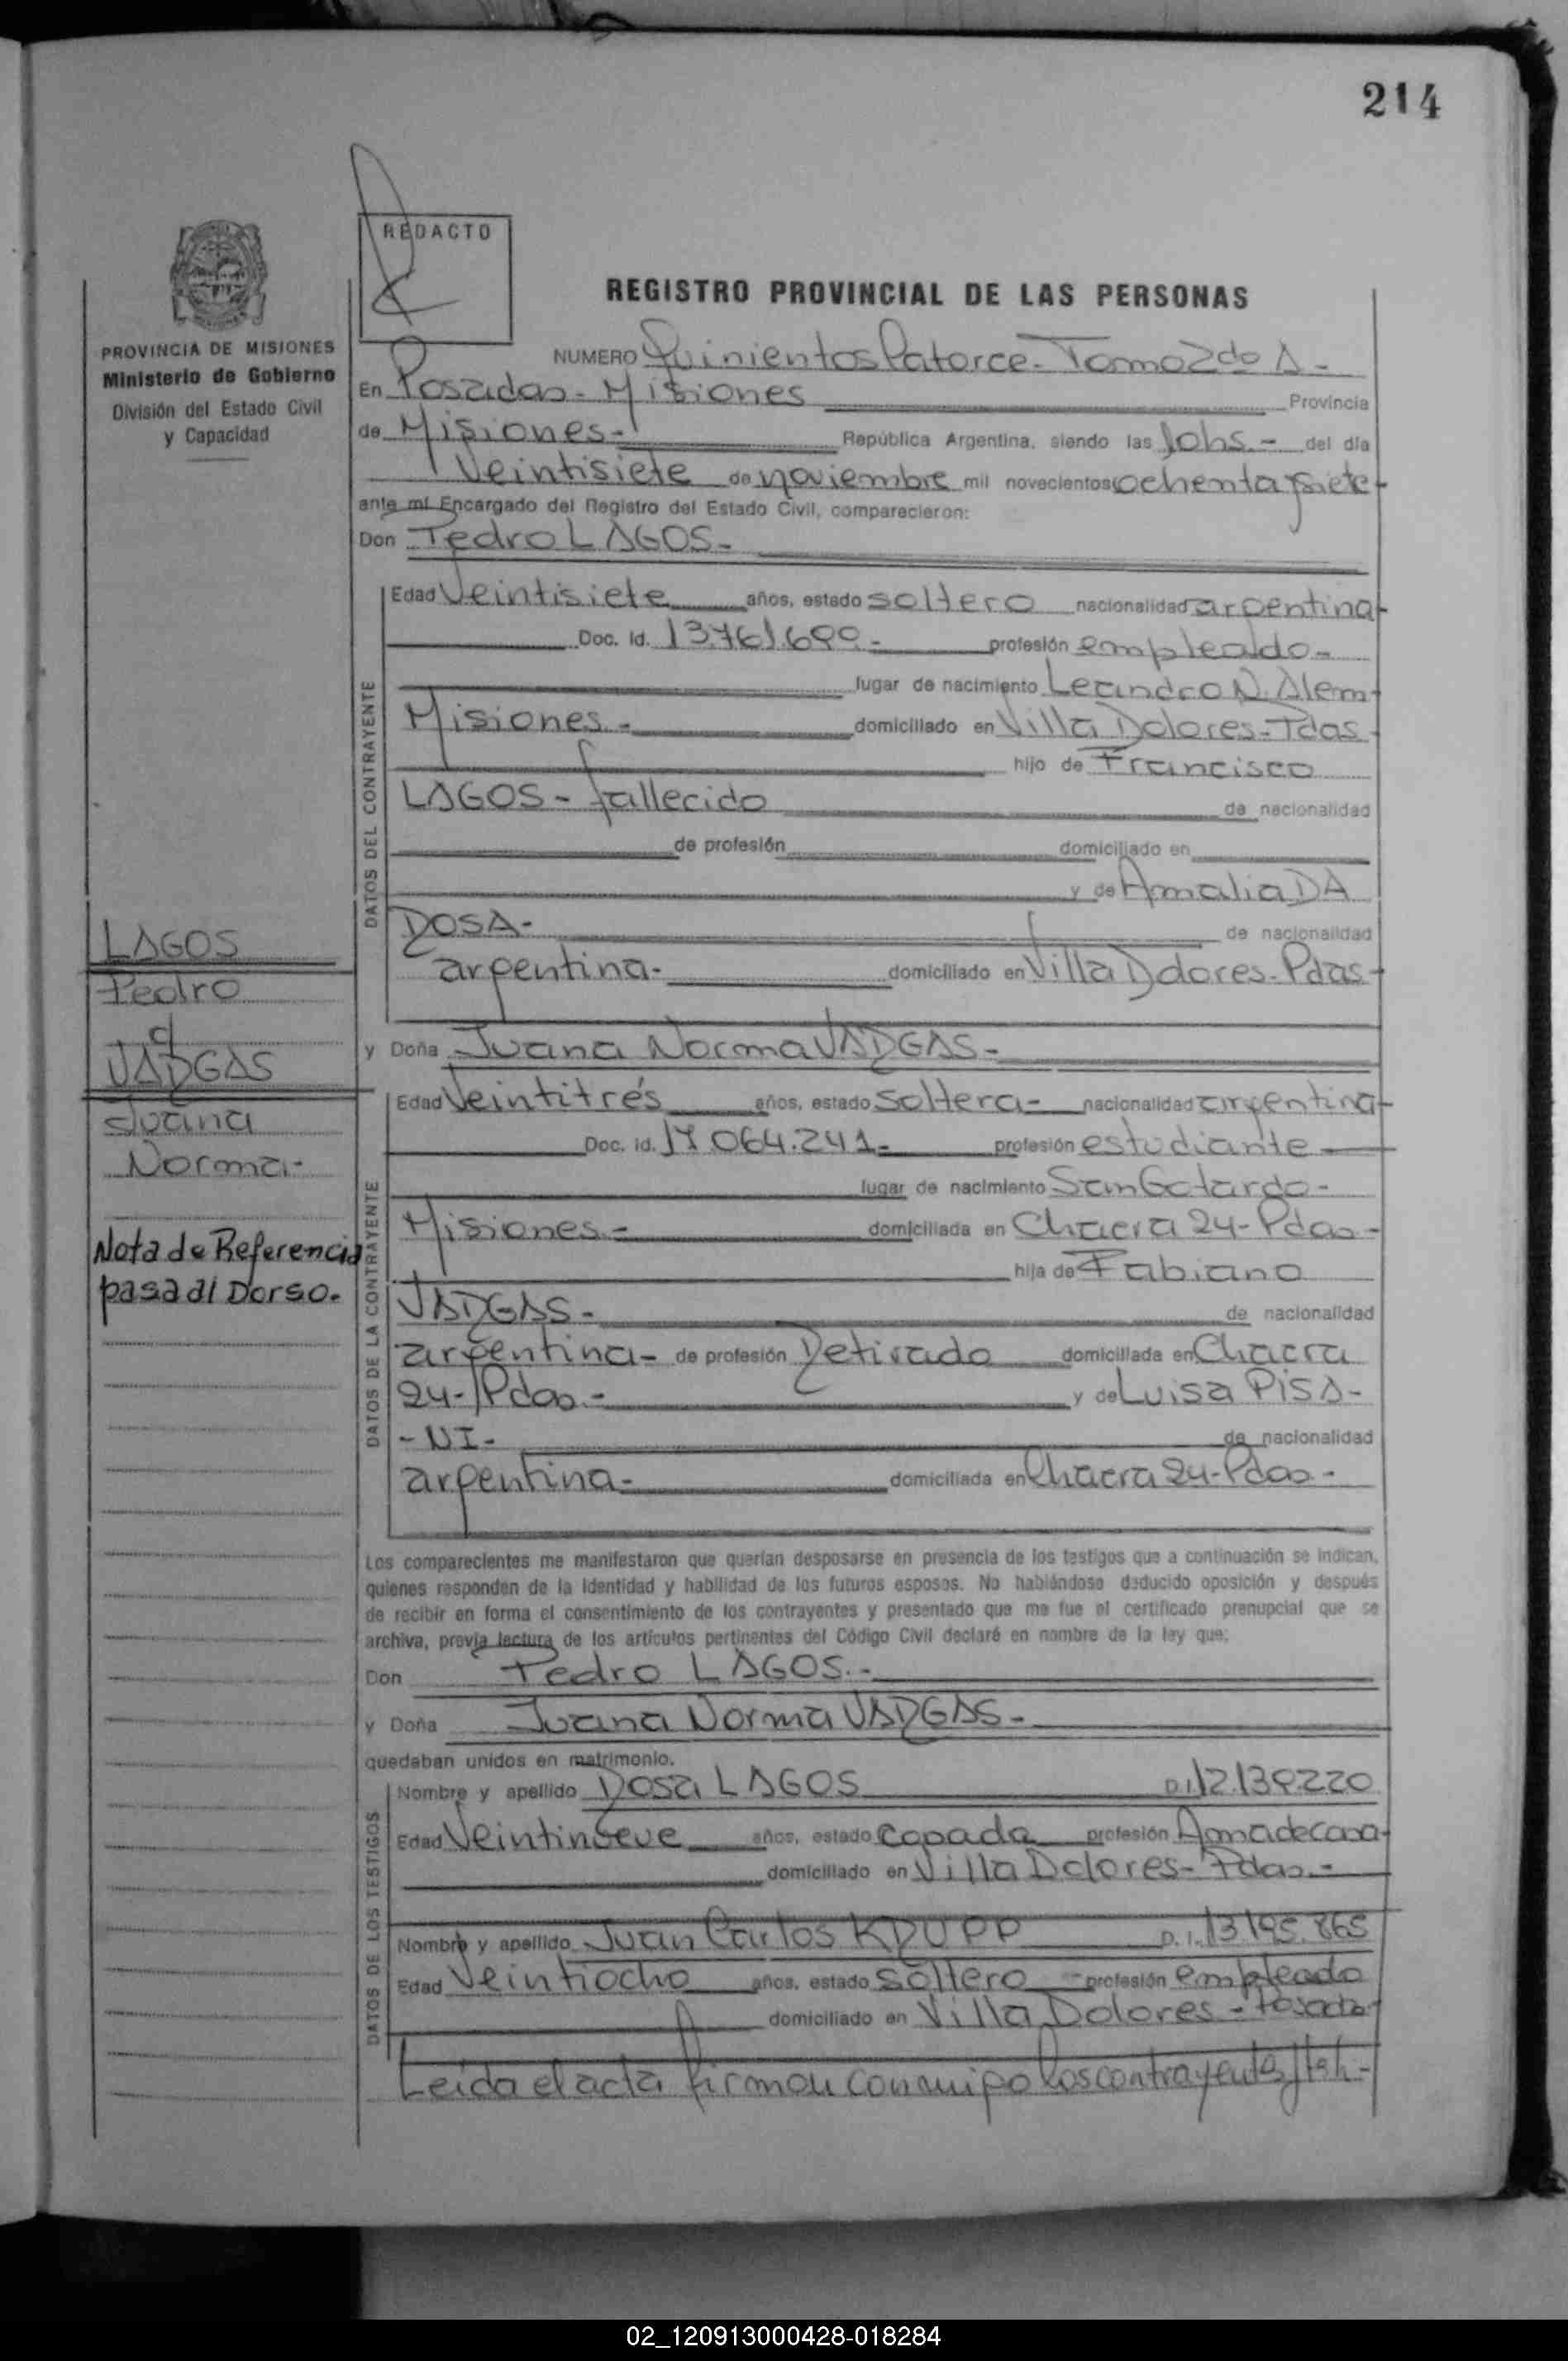 214
REDACTO
REGISTRO PROVINCIAL DE LAS PERSONAS
PROVINCIA DE MISIONES
Ministerio de Gobierno
División del Estado Civil
y Capacidad
NUMERO Quinientos Catorce - Tomo 2do A -
En Posadas - Misiones Provincia
de Misiones - República Argentina, siendo las 10hs. - del día
Veintisiete de noviembre mil novecientos ochenta y siete -
ante mí Encargado del Registro del Estado Civil, comparecieron:
Don Pedro LAGOS -
DATOS DEL CONTRAYENTE
Edad Veintisiete años, estado soltero nacionalidad argentina -
Doc. Id. profesión empleado -
lugar de nacimiento Leandro N. Alem -
Misiones - domiciliado en Villa Dolores - Pdas -
hijo de Francisco
LAGOS - fallecido de nacionalidad
de profesión domiciliado en
y de Amalia DA
ROSA - de nacionalidad
argentina - domiciliado en Villa Dolores - Pdas -
y Doña Juana Norma VARGAS -
DATOS DE LA CONTRAYENTE
Edad Veintitrés años, estado Soltera - nacionalidad argentina -
Doc. id. 17.064.241 - profesión estudiante
lugar de nacimiento San Gotardo -
Misiones - domiciliada en Chacra 24 - Pdas -
hija de Fabiano
VARGAS - de nacionalidad
argentina - de profesión Retirado domiciliada en Chacra
24 - Pdas - y de Luisa PISA -
- NI - de nacionalidad
argentina - domiciliada en Chacra 24 - Pdas -
Los comparecientes me manifestaron que querían desposarse en presencia de los testigos que a continuación se indican,
quienes responden de la identidad y habilidad de los futuros esposos. No habiéndose deducido oposición y después
de recibir en forma el consentimiento de los contrayentes y presentado que me fue el certificado prenupcial que se
archiva, previa lectura de los artículos pertinentes del Código Civil declaré en nombre de la ley que:
Don Pedro LAGOS -
y Doña Juana Norma VARGAS -
quedaban unidos en matrimonio.
DATOS DE LOS TESTIGOS
Nombre y apellido Rosa LAGOS D.I.
Edad Veintinueve años, estado Casada profesión Ama de casa -
domiciliado en Villa Dolores - Pdas -
Nombre y apellido Juan Carlos KRUPP D.I. 13.195.865
Edad Veintiocho años, estado Soltero - profesión empleado
domiciliado en Villa Dolores - Posadas
Leída el acta firman conmigo los contrayentes
LAGOS
Pedro
c/
VARGAS
Juana
Norma -
Nota de Referencia
pasa al Dorso.
02_120913000428-018284